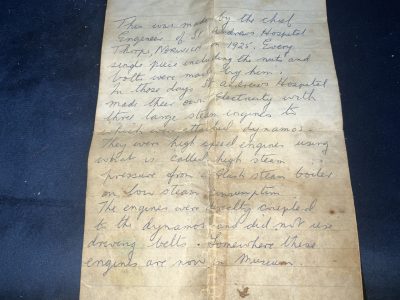 This was made by the chief
Engineer of St Andrews Hospital
Thorpe, NORWICH in 1925. Every
single piece including the nuts and
bolts were made by him.
In those days St Andrews Hospital
made their own Electricity with
three large steam engines to
which were attached dynamos.
They were high speed engines using
what is called high steam
pressure from a steam boiler
on low steam consumption
The engines were directly coupled
to the dynamos and did not use
driving belts. Somewhere these
engines are now in Museum